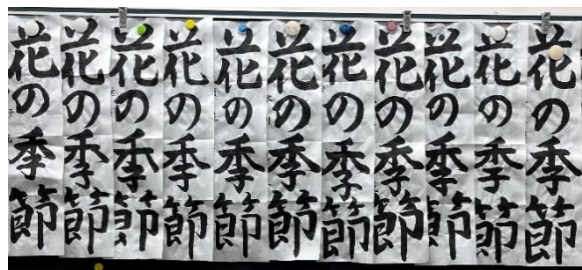 花の季節
花の季節
花の季節
花の季節
花の季節
花の季節
花の季節
花の季節
花の季節
花の季節
花の季節